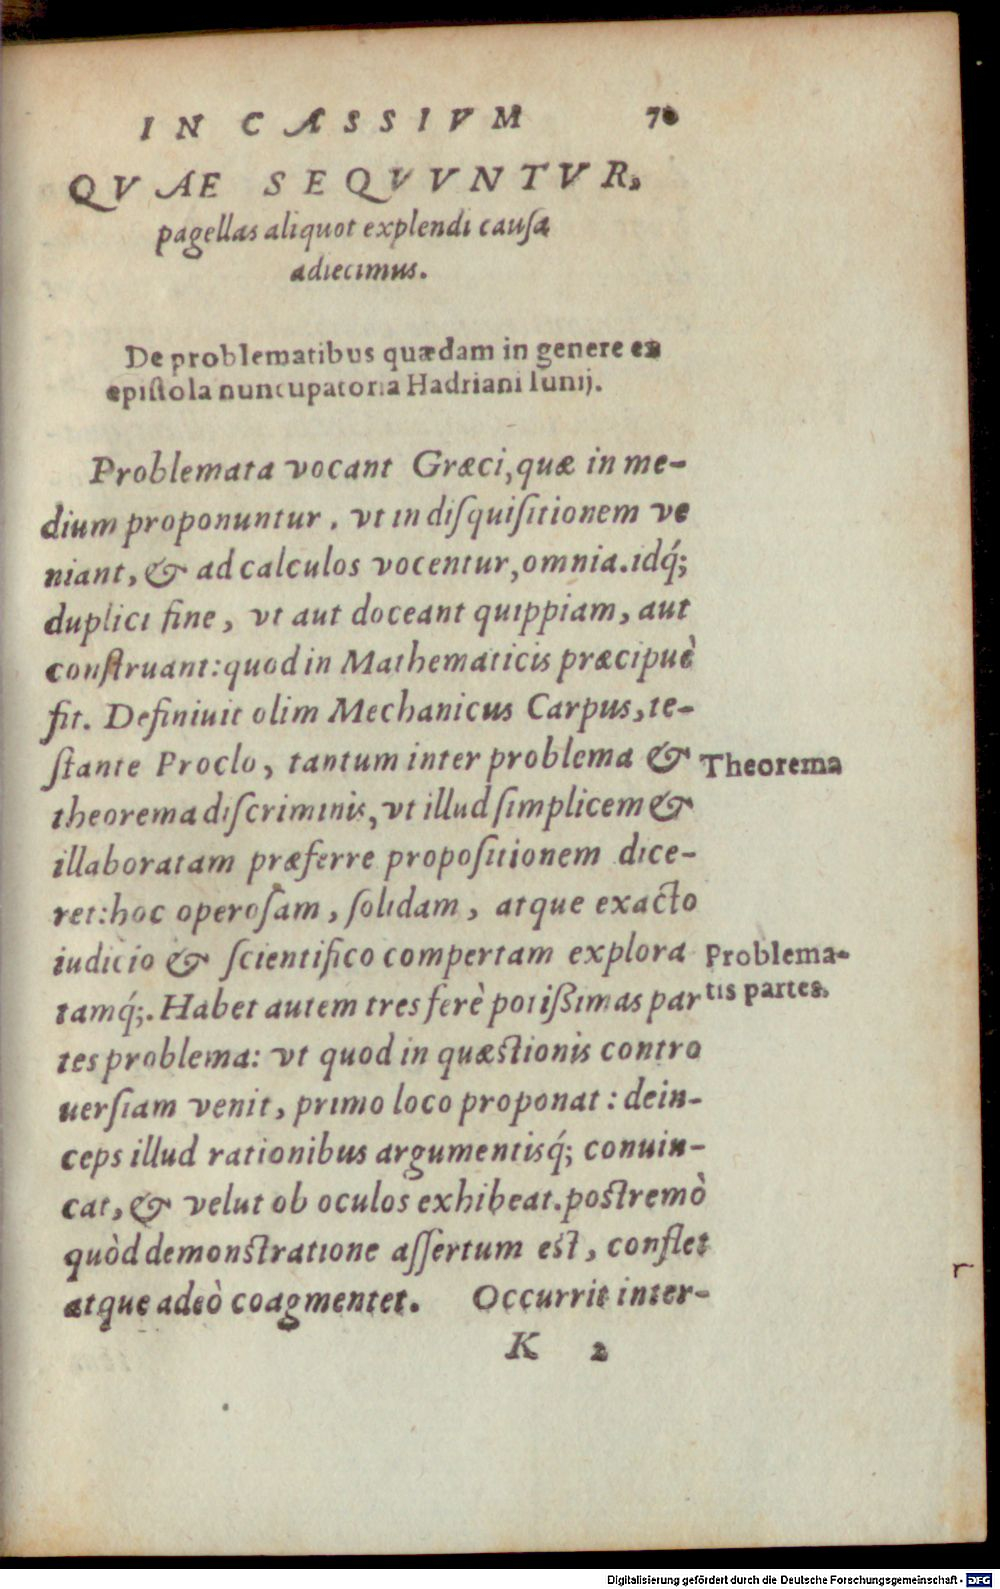 IN CASSIVM 70
QVAE SEQVVNTVR,
pagellas aliquot explendi cauſa
adiecimus.
De problematibus quædam in genere ex
epiſtola nuncupatoria Hadriani Iunij.
Problemata vocant Græci, quæ in me-
dium proponuntur, vt in diſquiſitionem ve
niant, & ad calculos vocentur, omnia. idq́;
duplici fine, vt aut doceant quippiam, aut
conſtruant: quod in Mathematicis præcipuè
fit. Definiuit olim Mechanicus Carpus, te-
ſtante Proclo, tantum inter problema &
Theorema
theorema diſcriminis, vt illud ſimplicem &
illaboratam præferre propoſitionem dice-
ret: hoc operoſam, ſolidam, atque exacto
iudicio & ſcientifico compertam explora
Problema-
tamq́;. Habet autem tres ferè potißimas par
tis partes.
tes problema: vt quod in quæſtionis contro
uerſiam venit, primo loco proponat: dein-
ceps illud rationibus argumentisq́; conuin-
cat, & velut ob oculos exhibeat. poſtremò
quòd demonſtratione aſſertum eſt, conflet
atque adeò coagmentet. Occurrit inter-
K 2
Digitalisierung gefördert durch die Deutsche Forschungsgemeinschaft - DFG